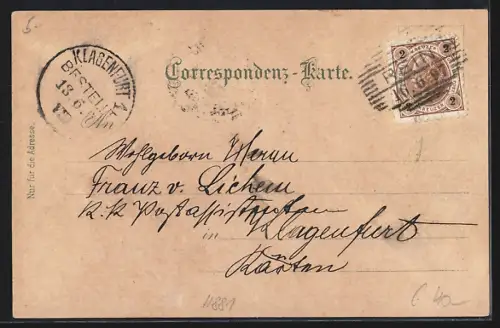 5-
KLAGENFURT
BESTELLT
13 6
Correspondenz-Karte.
2 KREUZER 2
Nur für die Adresse.
Wohlgeborn Herrn
Franz v. Lichem
K. K. Postassistenten
in Klagenfurt
Kärten
11881